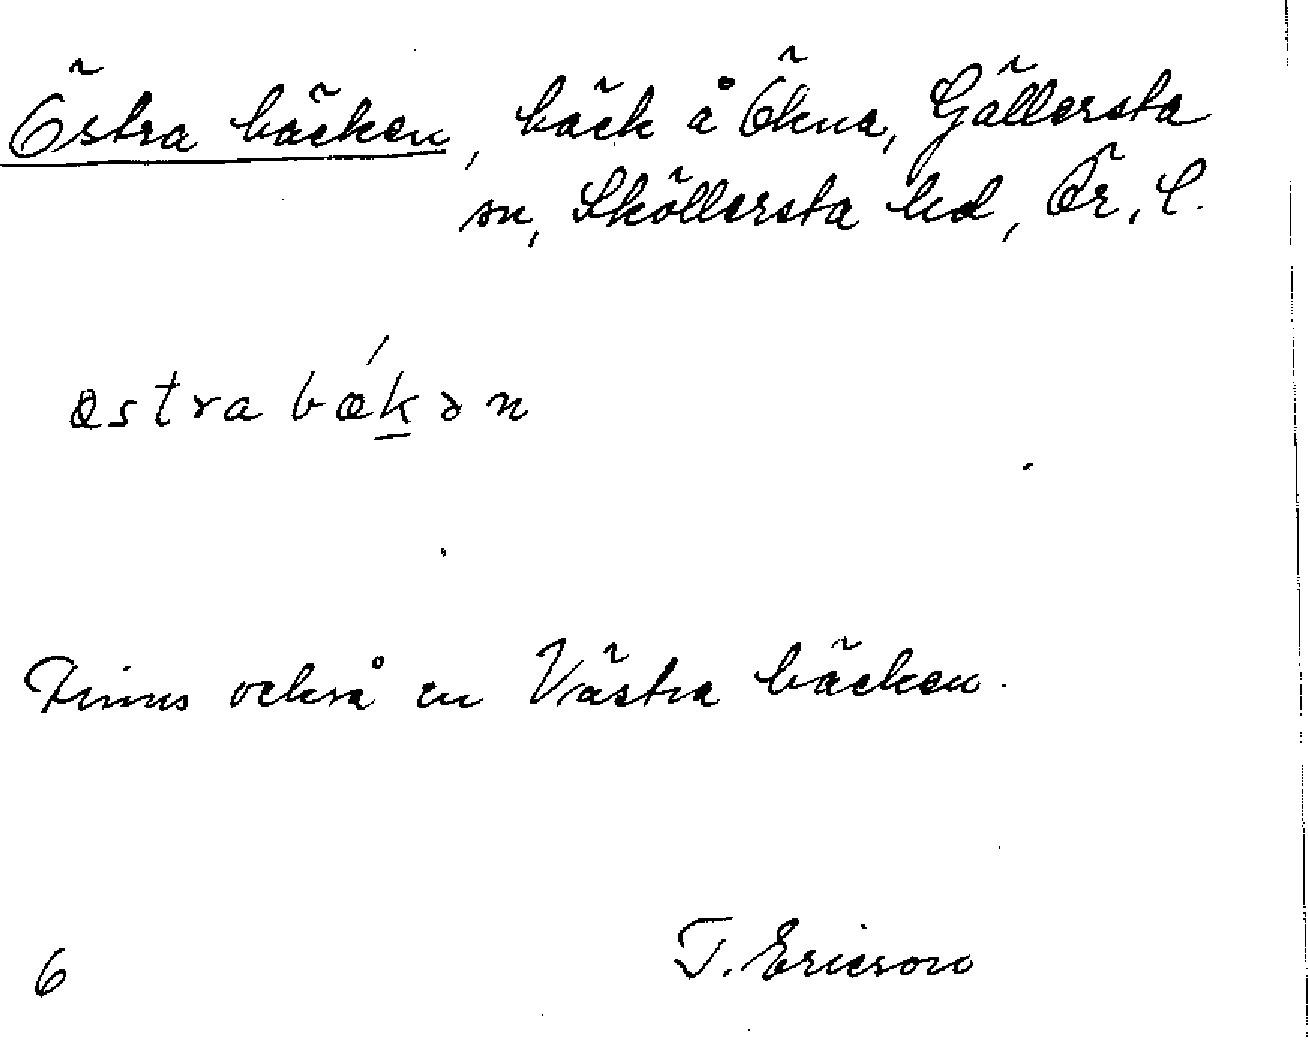 Östra bäcken, bäck å Ökna, Gällersta
sn, Sköllersta hd, Ör. l.
östra bǽk̲ən
Finns också en Västra bäcken.
6 T. Ericson